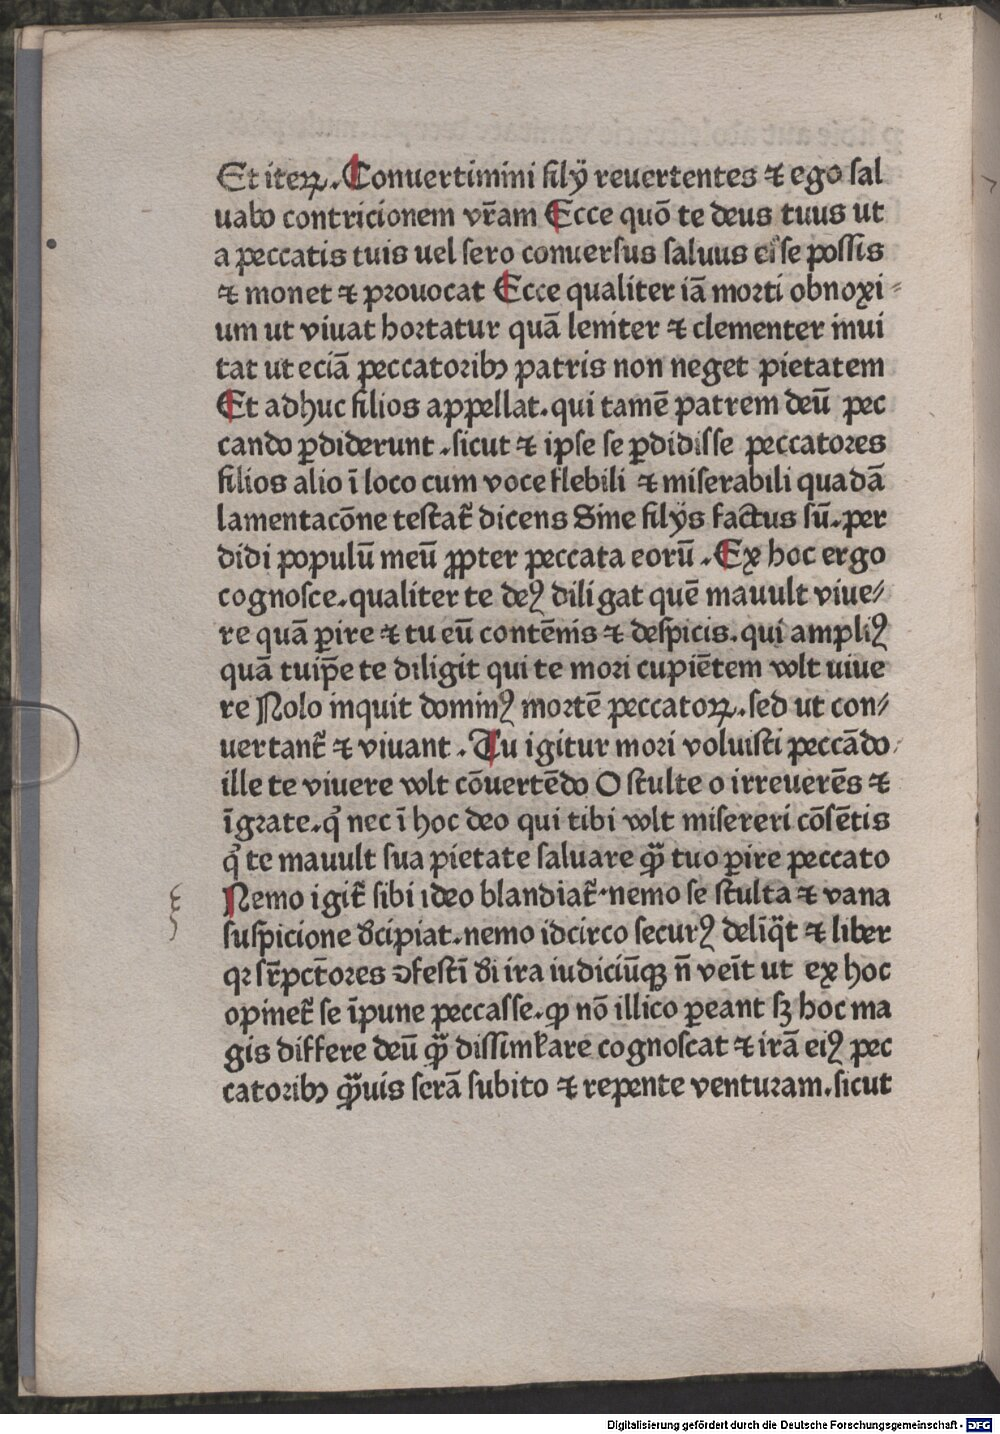 Et iteꝝ. Conuertimini filÿ reuertentes ⁊ ego sal
uabo contricionem vr̄am Ecce quō te deus tuus ut
a peccatis tuis uel sero conuersus saluus eſse poſſis
⁊ monet ⁊ prouocat Ecce qualiter iā morti obnoxi⸗
um ut viuat hortatur quā leniter ⁊ clementer inui
tat ut eciā peccatoribꝫ patris non neget pietatem
Et adhuc filios appellat. qui tamē patrem deū pec
cando ꝑdiderunt. sicut ⁊ ipse se ꝑdidiſſe peccatores
filios alio ī loco cum voce flebili ⁊ miserabili quadā
lamentacōne testat᷑ dicens Sine filÿs factus sū. per
didi populū meū ꝓpter peccata eorū. Ex hoc ergo
cognosce. qualiter te deꝰ diligat quē mauult viue⸗
re quā ꝑire ⁊ tu eū contēnis ⁊ despicis. qui ampliꝰ
quā tuip̄e te diligit qui te mori cupiētem wlt uiue
re Nolo inquit dominꝰ mortē peccatoꝝ. sed ut con⸗
uertant᷑ ⁊ viuant. Tu igitur mori voluisti peccādo
ille te viuere wlt cōuertēdo O stulte o irreuerēs ⁊
īgrate. qͥ nec ī hoc deo qui tibi wlt misereri cōsētis
qͥ te mauult sua pietate saluare qᷓꝫ tuo ꝑire peccato
Nemo igit᷑ sibi ideo blandiat᷑. nemo se stulta ⁊ vana
suspicione dcipiat. nemo idcirco securꝰ delīqͣt ⁊ liber
qꝛ sr̄pct̄ores ↄfestī di ira iudiciūqꝫ n̄ veīt ut ex hoc
opinet᷑ se īpune peccaſse. ꝙ nō illico ꝑeant sꝫ hoc ma
gis differe deū qᷓꝫ diſſimlare cognoscat ⁊ irā eiꝰ pec
catoribꝫ qᷓꝫuis serā subito ⁊ repente venturam. sicut
Digitalisierung gefördert durch die Deutsche Forschungsgemeinschaft - DFG